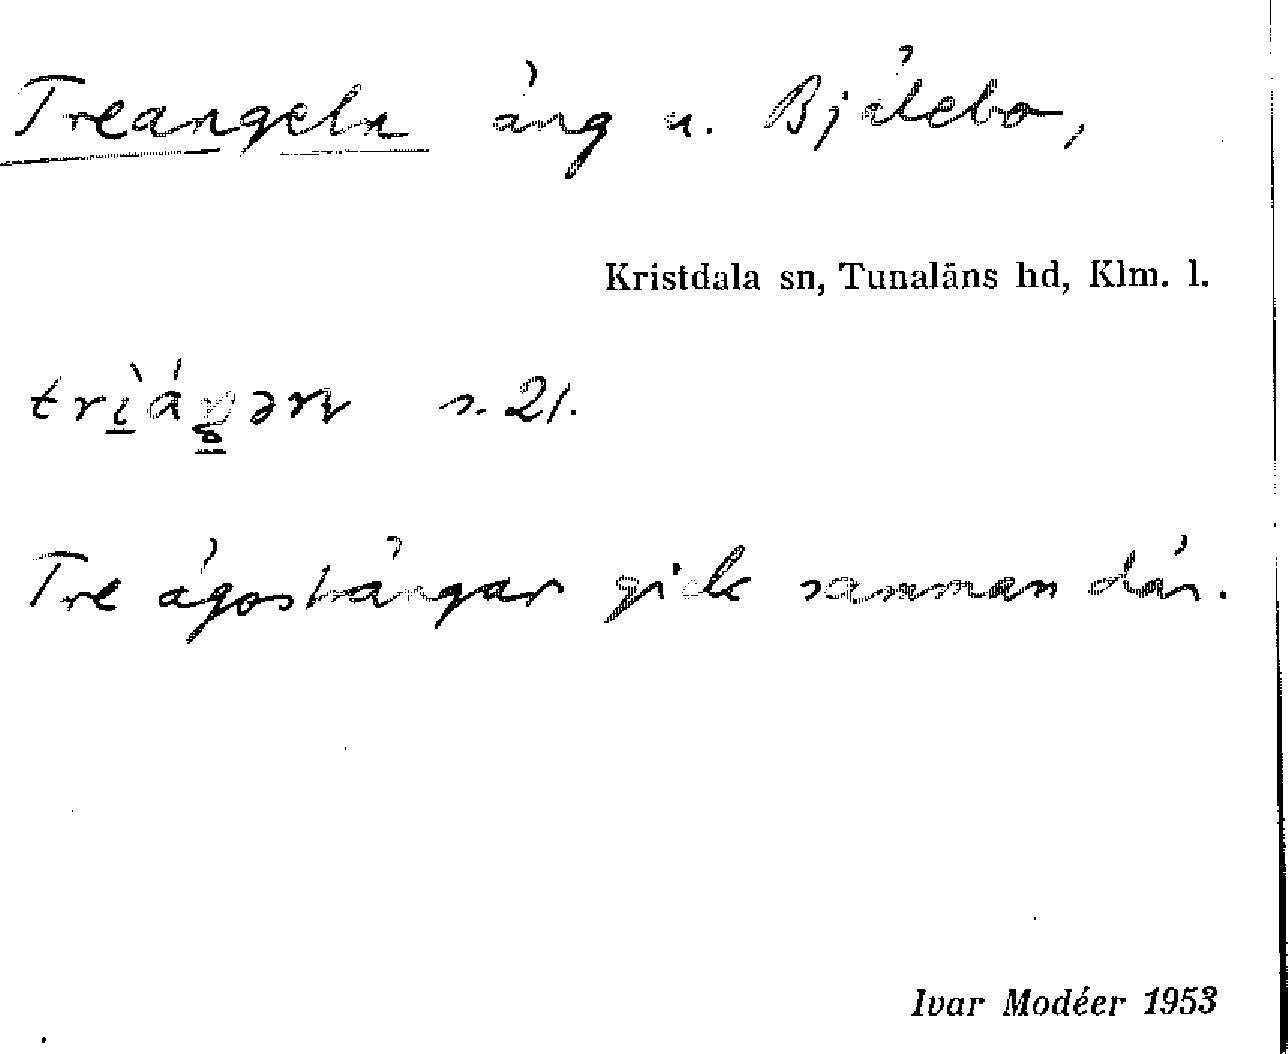 Treangeln äng u. Bjälebo,
Kristdala sn, Tunaläns hd, Klm. l.
s. 21.
Tre ägostängar gick samman där.
Ivar Modéer 1953